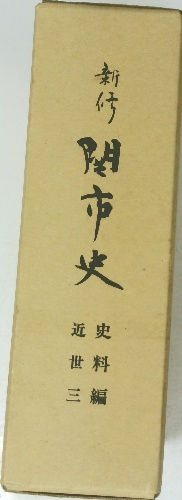 新修
関市史
史料編
近世三